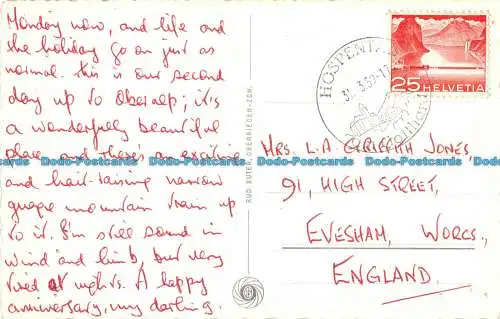 Monday now, and life and
the holiday go on just as
normal. This is our second
day up to Oberalp; it's
a wonderfully beautiful
place and there's an exciting
and hair-raising narrow
guage mountain train up
to it. I'm still sound in
wind and limb, but very
tired at nights. A happy
anniversary, my darling.
RUD. SUTER, OBERRIEDEN-ZCH.
HOSPENTAL
31. 3.59-17
25 HELVETIA
MRS. L.A. GRIFFITH JONES,
91, HIGH STREET,
EVESHAM, WORCS,
ENGLAND.
Dodo-Postcards Dodo-Postcards Dodo-Postcards Dodo-Postcards